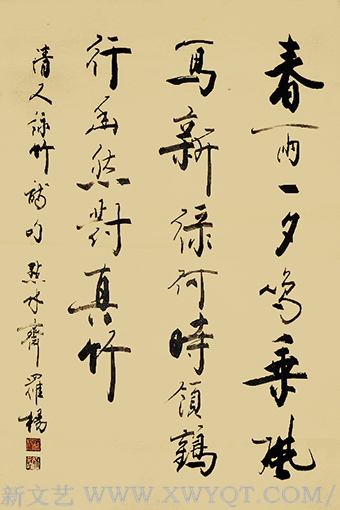 春雨一夕鸣乘興
寫新綠何時領鶴
行悠然對真竹
清人詠竹詩句 點水齋 羅楊
新文艺 WWW.XWYQT.COM/